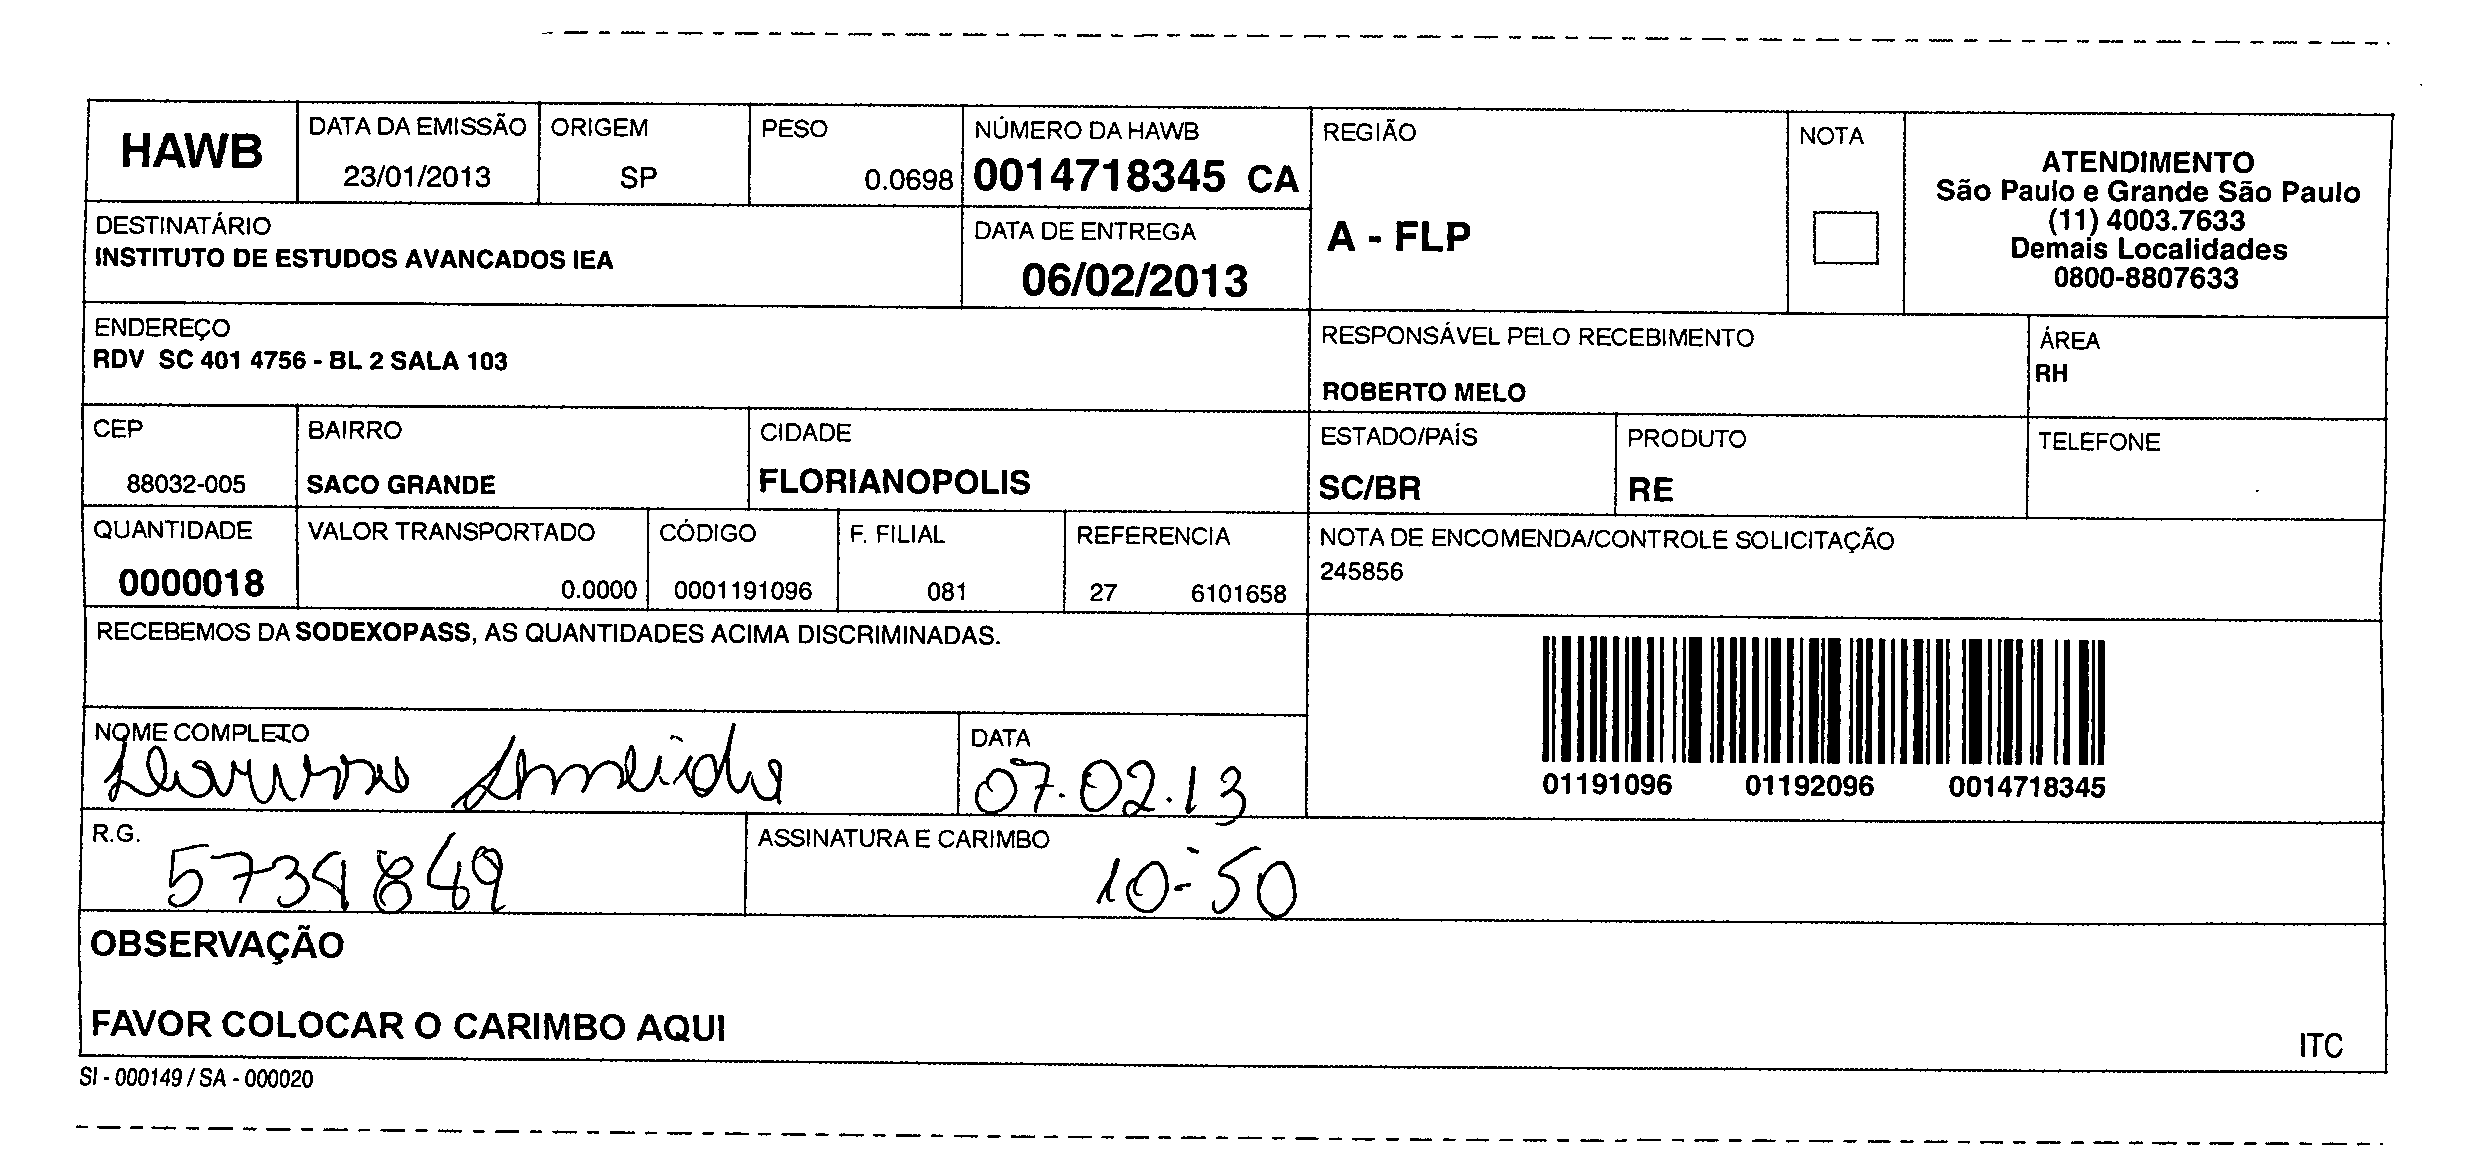 HAWB
DATA DA EMISSÃO
23/01/2013
ORIGEM
SP
PESO
0.0698
NÚMERO DA HAWB
0014718345 CA
REGIÃO
A - FLP
NOTA
ATENDIMENTO
São Paulo e Grande São Paulo
(11) 4003.7633
Demais Localidades
0800-8807633
DESTINATÁRIO
INSTITUTO DE ESTUDOS AVANCADOS IEA
DATA DE ENTREGA
06/02/2013
ENDEREÇO
RDV SC 401 4756 - BL 2 SALA 103
RESPONSÁVEL PELO RECEBIMENTO
ROBERTO MELO
ÁREA
RH
CEP
88032-005
BAIRRO
SACO GRANDE
CIDADE
FLORIANOPOLIS
ESTADO/PAÍS
SC/BR
PRODUTO
RE
TELEFONE
QUANTIDADE
0000018
VALOR TRANSPORTADO
0.0000
CÓDIGO
0001191096
F. FILIAL
081
REFERENCIA
27 6101658
NOTA DE ENCOMENDA/CONTROLE SOLICITAÇÃO
245856
RECEBEMOS DA SODEXOPASS, AS QUANTIDADES ACIMA DISCRIMINADAS.
01191096 01192096 0014718345
NOME COMPLETO
Almeida
DATA
07.02.13
R.G.
5739849
ASSINATURA E CARIMBO
10:50
OBSERVAÇÃO
FAVOR COLOCAR O CARIMBO AQUI
ITC
SI - 000149 / SA - 000020